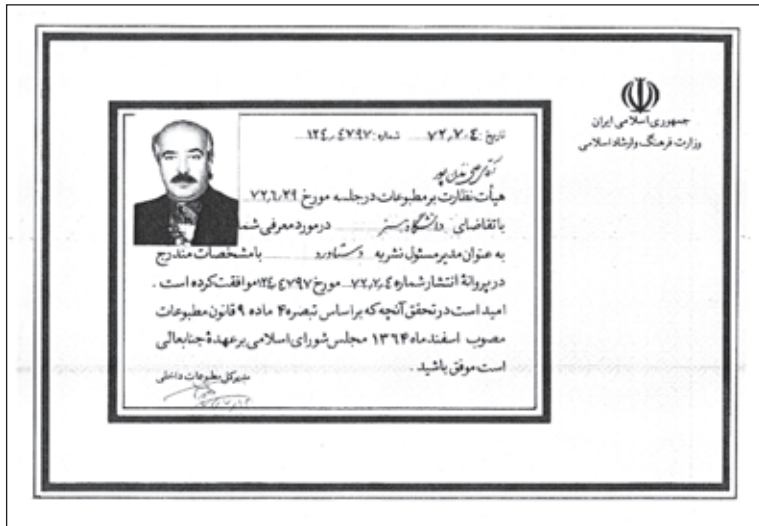 جمهوری اسلامی ایران
وزارت فرهنگ و ارشاد اسلامی
تاریخ: ۷۲٫۷٫۰٤ شماره: ۱۲٤٫٤۷۹۷
آقای
هیأت نظارت بر مطبوعات در جلسه مورخ ۷۲٫٦٫۲۹
با تقاضای دانشگاه تبریز در مورد معرفی شما
به عنوان مدیر مسئول نشریه دستاورد با مشخصات مندرج
در پروانهٔ انتشار شماره مورخ موافقت کرده است .
امید است در تحقق آنچه که براساس تبصره ۴ ماده ۹ قانون مطبوعات
مصوب اسفند ماه ۱۳۶۴ مجلس شورای اسلامی بر عهدهٔ جنابعالی
است موفق باشید .
مدیر کل مطبوعات داخلی